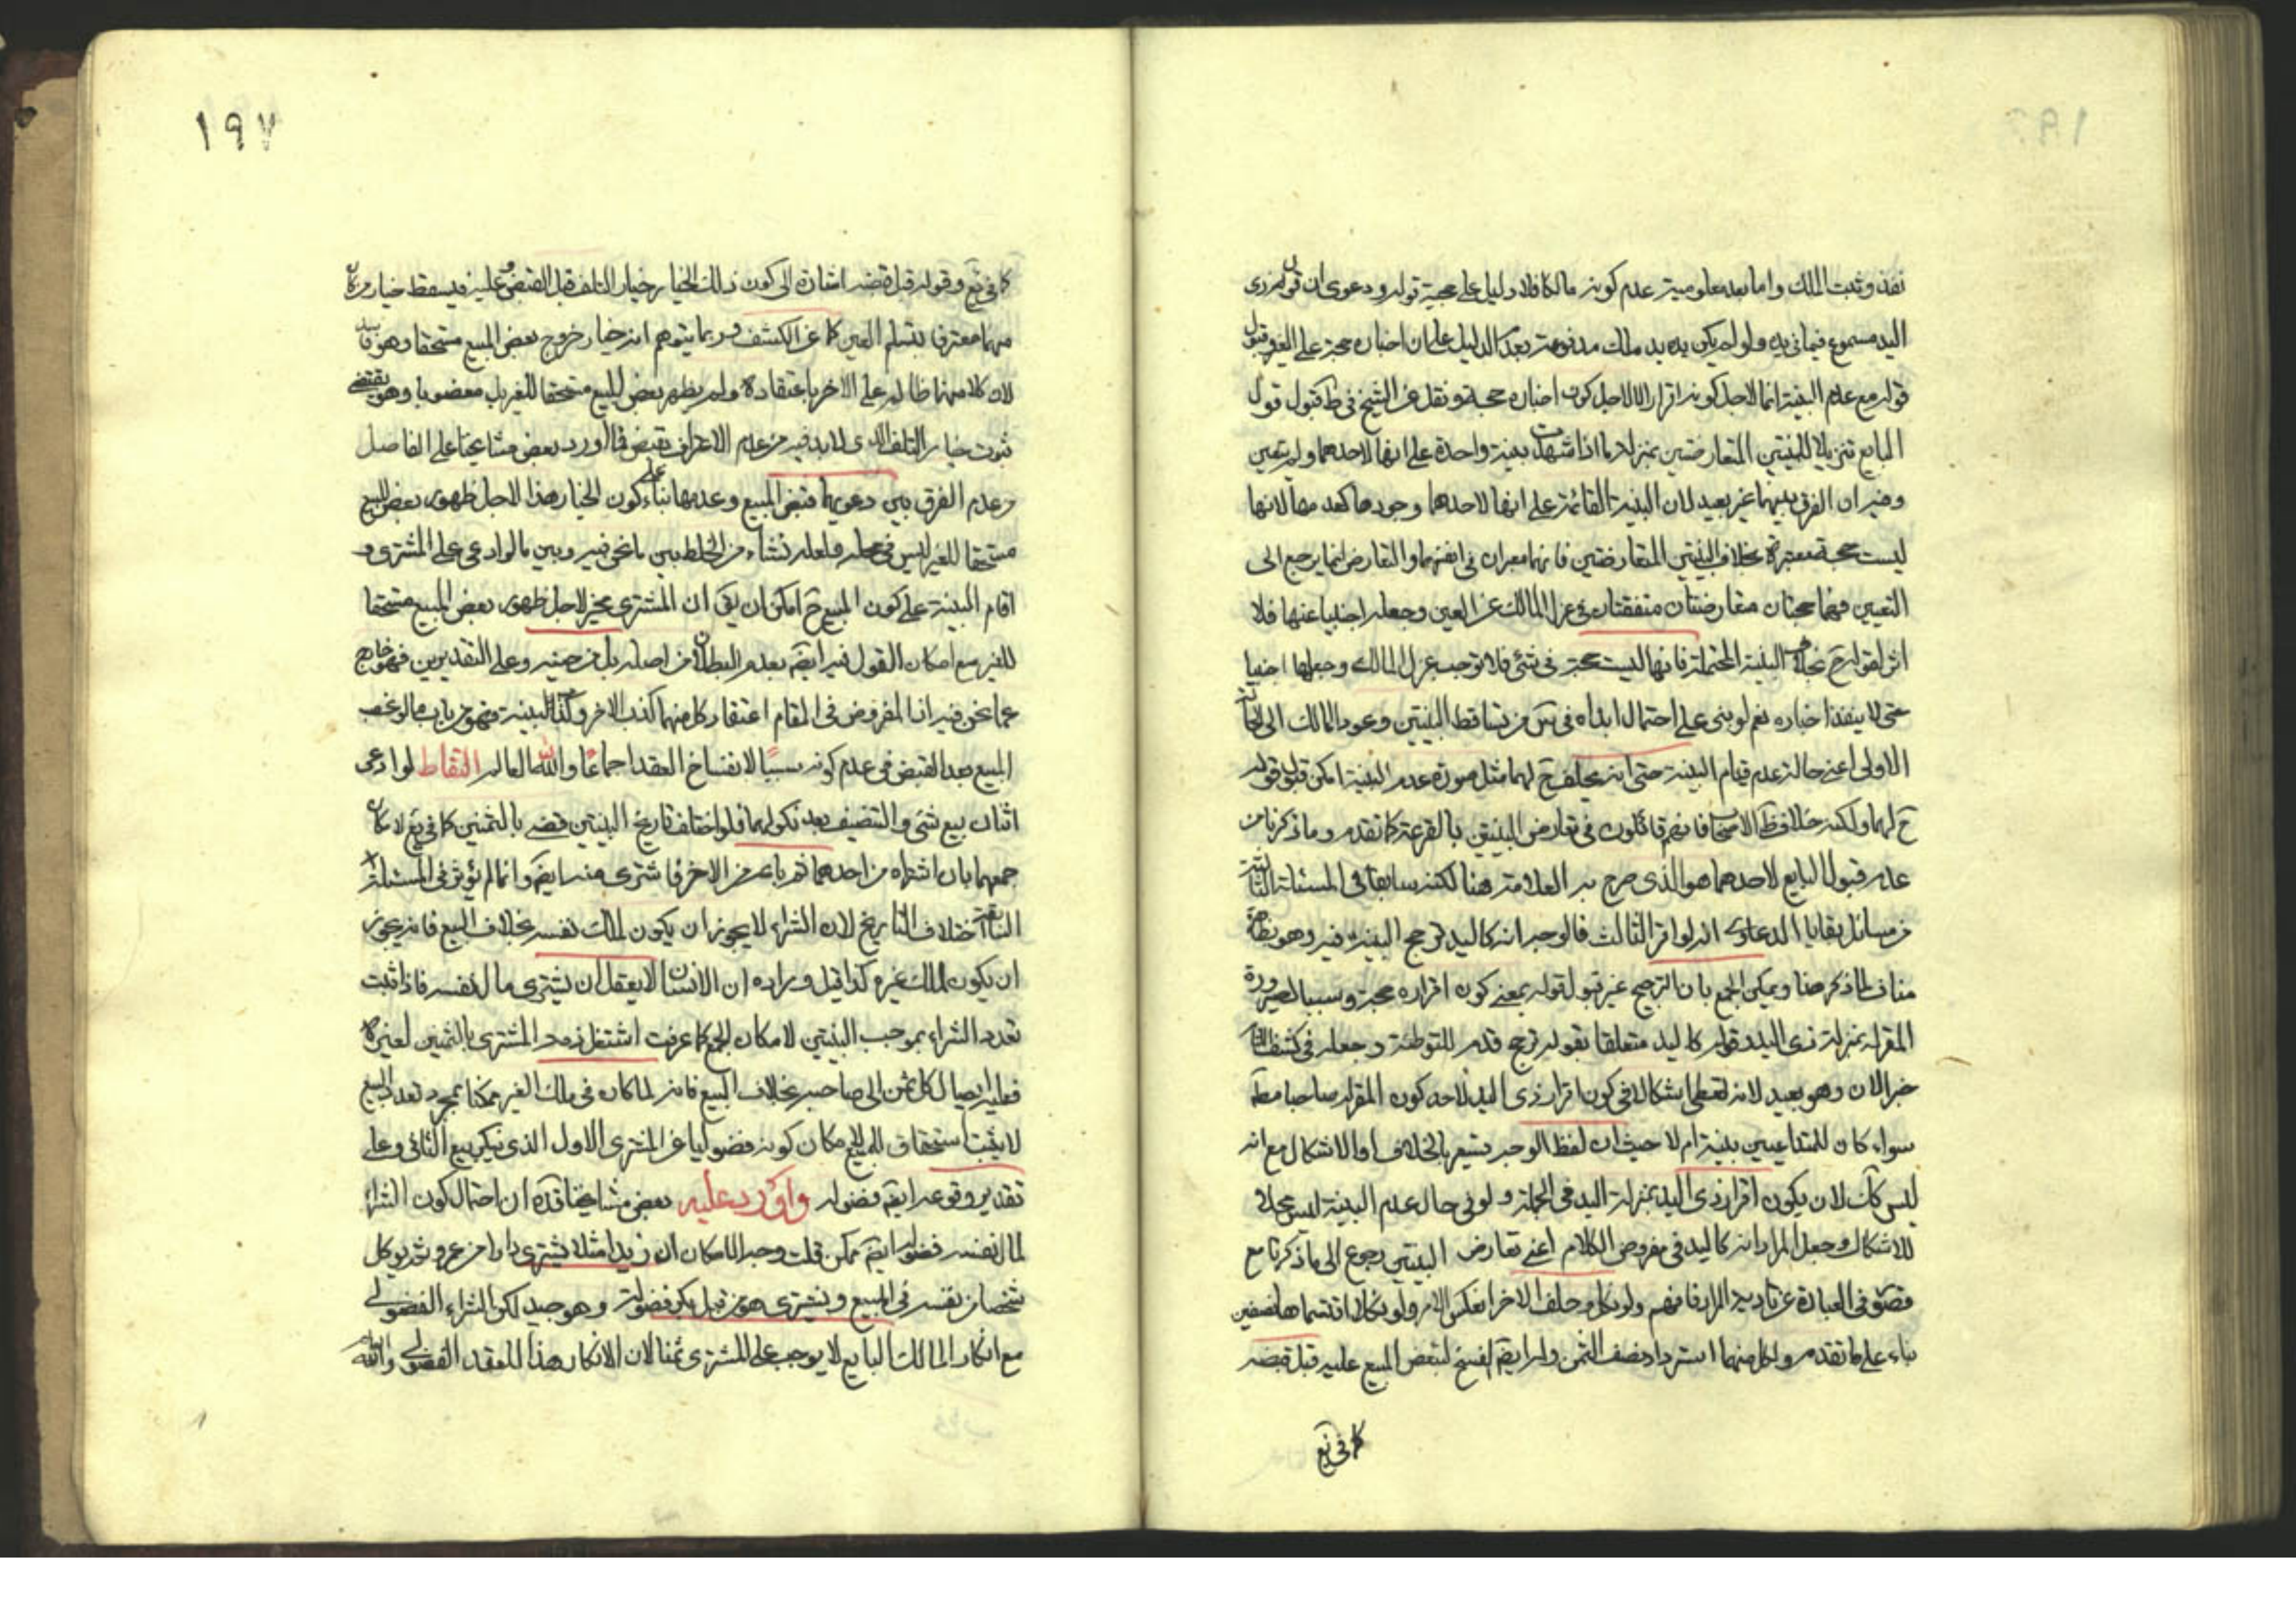 نفذ وثبت الملك واما بعد معلومية عدم كونه مالكا فلا دليل على حجية قوله ودعوى ان قول ذى
اليد مسموع فيما فى يده ولو لم يكن يده يد ملك مدفوعة بعدم الدليل على ان اخباره حجة على الغير وقبول
قوله مع عدم البينة انما لاجل كونه اقرارا لا لاجل كون اخباره حجة ونقل عن الشيخ فى ط قبول قول
البايع تنزيلا للبينتين المتعارضتين بمنزلة ما اذا شهدت بينة واحدة على انها لاحدهما ولم تعين
وفيه ان الفرق بينهما غير بعيد لان البينة القائمة على انها لاحدهما وجودها كعدمها لانها
ليست حجة معتبرة بخلاف البينتين المتعارضتين فانهما معتبران فى انفسهما والتعارض انما يرجع الى
التعيين فهما حجتان متعارضتان متفقتان فى عزل المالك عن العين وجعله اجنبيا عنها فلا
اثر لقوله ح بخلاف البينة المحتملة فانها ليست حجة فى شئ فلا توجب عزل المالك وجعلها اجنبيا
حتى لا ينفذ اخباره نعم لو بنى على احتمال ابداه فى من تساقط البينتين وعود المالك الى الحالة
الاولى اعنى حالة عدم قيام البينة حتى انه يحلف ح لهما مثل صورة عدم البينة امكن قبول قوله
ح لهما ولكنه خلاف ظ الاصحاب فانهم قائلون فى تعارض البينتين بالقرعة كما تقدم وما ذكرنا من
عدم قبول البايع لاحدهما هو الذى صرح به العلامة هنا لكنه سابقا فى المسئلة الثالثة
من مسائل بقايا الدعاوى انه لو اقر الثالث فالوجه انه كاليد ترجح البينة فيه وهو بظاهره
مناف لما ذكر هنا ويمكن الجمع بان الترجيح غير قبول قوله بمعنى كون اقراره حجة وسببا لصيرورة
المقر له بمنزلة ذى اليد وقوله كاليد متعلقا بقوله ترجح قدم للتوطئة وجعله فى كشف اللثام
خبرا لان وهو بعيد لانه يعطى اشكالا فى كون اقرار ذى اليد لاحد كون المقر له صاحبا مط
سواء كان للمتداعيين بينة ام لا حيث ان لفظ الوجه يشعر بالخلاف او الاشكال مع انه
ليس كك لان يكون اقرار ذى اليد بمنزلة اليد فى الجملة ولو فى حال عدم البينة ليس محلا
للاشكال وجعل المراد انه كاليد فى مفروض الكلام اعنى تعارض البينتين رجوع الى ما ذكرنا مع
قصور فى العبارة عن تادية المراد فافهم ولو نكل وحلف الاخر انعكس الامر ولو نكلا اقتسماها نصفين
بناء على ما تقدم ولكل منهما استرداد نصف الثمن وله ايضا الفسخ لتبعض المبيع عليه قبل قبضه
كما فى يع
١٩٧
كما فى يع وقوله قبل قبضه اشارة الى كون ذلك الخيار خيار التلف قبل القبض وعليه فيسقط خيار من كان
منهما معترفا بتسلم العين كما عن الكشف وربما يتوهم انه خيار خروج بعض المبيع مستحقا وهو فاسد
لان كلا منهما ظالم على الاخر باعتقاده ولم يظهر بعض المبيع مستحقا للغير بل مغصوبا وهو يقتضى
ثبوت خيار التلف الذى لا بد فيه من عدم الاعتراف بقبض فما اورد بعض مشايخنا على الفاضل
وعدم الفرق بين دعويهما قبض المبيع وعدمها بناء على كون الخيار هذا لاجل ظهور بعض المبيع
مستحقا للغير ليس فى محله ولعله نشاء من الخلط بين ما نحن فيه وبين ما لو ادعى على المشترى و
اقام البينة على كون المبيع ح امكن ان يق ان المشترى مخير لاجل ظهور بعض المبيع مستحقا
للغير مع امكان القول فيه ايضا بعدم البطلان من اصله بل من حينه وعلى التقديرين فهو خارج
عما نحن فيه اذ المفروض فى المقام اعتقاد كل منهما كذب الاخر وكذا البينة فهو من باب ما لو غصب
المبيع بعد القبض فى عدم كونه سببا لانفساخ العقد اجماعا والله العالم التقاط لو ادعى
اثنان بيع شئ والتنصيف بعد نكولهما فلو اختلف تاريخ البينتين قضى بالثمنين كما فى يع لامكان
جمعهما بان اشتراه من احدهما ثم باعه من الاخر فاشترى منه ايضا وانما لم يؤثر فى المسئلة
السابقة اختلاف التاريخ لان الشراء لا يجوز ان يكون لملك نفسه بخلاف البيع فانه يجوز
ان يكون لملك غيره كذا قيل ومراده ان الانسان لا يعقل ان يشترى مال نفسه فاذا ثبت
تعدد الشراء بموجب البينتين لامكان الجمع كما عرفت اشتغل ذمة المشترى بالثمنين لغيره
فعليه ايصال كل ثمن الى صاحبه بخلاف البيع فانه لما كان فى ملك الغير ممكنا بمجرد تعدد البيع
لا يثبت استحقاق المبيع لامكان كونه فضوليا عن المشترى الاول الذى ينكر بيع الثانى وعلى
تقدير وقوعه ايضا فضولى واورد عليه بعض مشايخنا قده ان احتمال كون الشراء
لمال نفسه فضولا ايضا ممكن قلت وجه الامكان ان زيدا مثلا يشترى دارا من عمرو ثم يوكل
شخصا من نفسه فى المبيع ويشترى هو من قبل بكر فضولة وهو جيد لكن الشراء الفضولى
مع انكار المالك البايع لا يوجب على المشترى ثمنا لان الانكار هذا للعقد الفضولى والله العالم